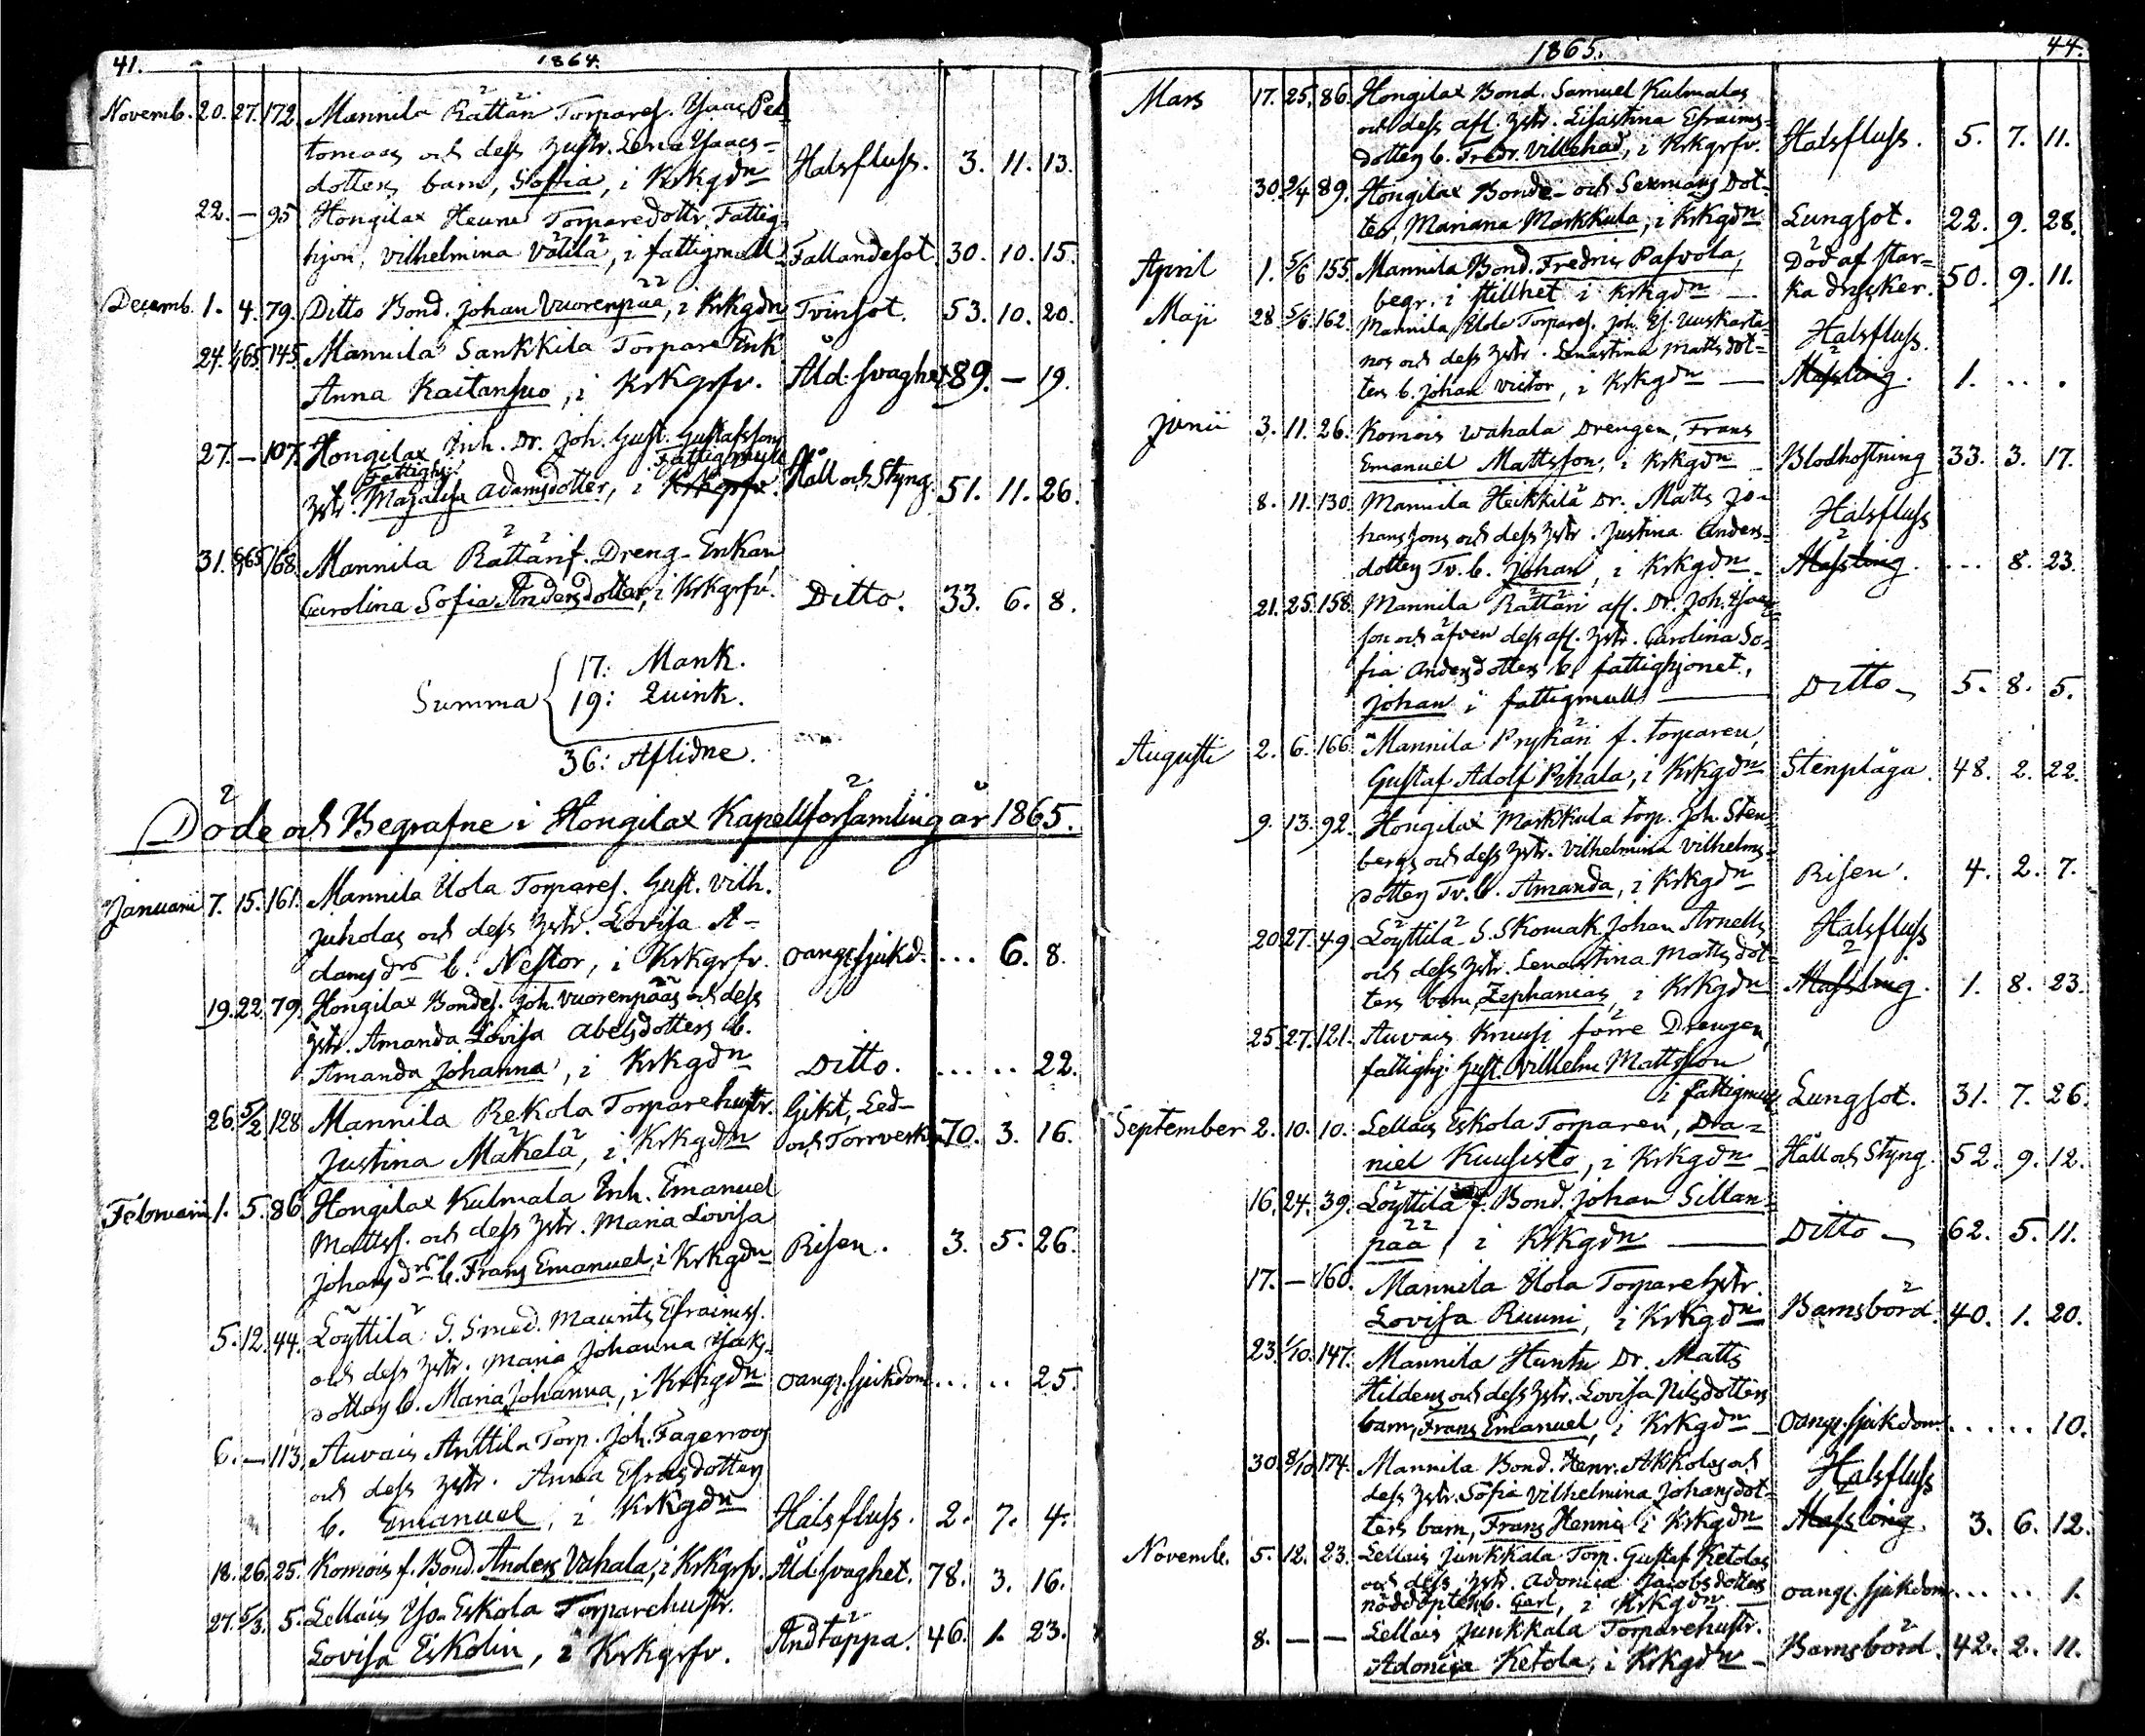 41. 1864.
Novemb. 20. 27. 172. Mannila Rättäri Torpares. Isaac Pel-
tomaas och dess hustr. Lena Isaacs-
dotters barn, Sofia, i Krkgdn Halsfluss. 3. 11. 13.
22. — 95 Hongilax Heunu Torparedottr. Fattig-
hjon, Vilhelmina Välilä, i fattigmull Fallandesot. 30. 10. 15.
Decemb. 1. 4. 79. Ditto Bond. Johan Vuorenpää, i Krkgdn Tvinsot. 53. 10. 20.
24. 1/1 65 145. Mannila Sankkila Torpare Enk
Anna Kaitansuo, i Krkgrfv. Åld. svaghet 89. — 19.
27. — 107. Hongilax Inh. Dr. Joh. Gust. Gustafssons
Fattighj. Fattigmull
hstr. Majalisa Adamsdotter, i Krkgrfv. Håll och Styng. 51. 11. 26.
31. 65 168. Mannila Rättärif. Dreng-Enkan
Carolina Sofia Andersdotter, i Krkgrfv. Ditto. 33. 6. 8.
17: Mank.
Summa 19: Quink.
36: Aflidne.
Döde och Begrafne i Hongilax Kapellförsamling år 1865.
Januarii 7. 15. 161. Mannila Uola Torpares. Gust. Vilh.
Juholas och dess hstr. Lovisa A-
dams drs b. Nestor, i Krkgrfv. oang. sjukd. ... 6. 8.
19. 22. 79. Hongilax Bondes. Joh. Vuorenpääs och dess
hstr. Amanda Lovisa Abelsdotters b.
Amanda Johanna, i Krkgdn Ditto. ... .. 22.
26. 5/2 128 Mannila Rekola Torparehustr. Gikt, Led-
Justina Mäkelä, i Krkgdn och Torrverk 70. 3. 16.
Februarii 1. 5. 86 Hongilax Kulmala Inh. Emanuel
Mattss. och dess hstr. Maria Lovisa
Johans drs b. Frans Emanuel, i Krkgdn Risen. 3. 5. 26.
5. 12. 44. Löyttilä S. Smed. Maurits Efraimss.
och dess hstr. Maria Johanna Isaks-
dotters b. Maria Johanna, i Krkgdn oang. sjukdom ... .. 25.
6. — 113. Auvais Anttila Torp. Joh. Fagerroos
och dess hstr. Anna Esrasdotters
b. Emanuel, i Krkgdn Halsfluss. 2. 7. 4.
18. 26. 25. Komois f. Bond. Anders Vahala, i Krkgrfv. Åld. svaghet. 78. 3. 16.
27. 5/3. 5. Lellais Iso-Eskola Torparehustr.
Lovisa Eskolin, i Krkgrfv. Andtäppa. 46. 1. 23.
1865. 44.
Mars 17. 25. 86. Hongilax Bond. Samuel Kulmalas
och dess afl. hstr. Lisastina Efraims-
dotters b. Fredr. Villehad, i Krkgrfv. Halsfluss. 5. 7. 11.
30. 9/4 89. Hongilax Bonde- och Sexmans Dot-
ter, Mariana Markkula, i Krkgdn Lungsot. 22. 9. 28.
April 1. 5/6 155. Mannila Bond. Fredric Pasvola, Död af star-
begr. i stillhet i Krkgdn — ka drycker. 50. 9. 11.
Maji 28 5/6. 162. Mannila Uola Torpares. Joh. Es. Uuskarta-
nos och dess hstr. Lenastina Mattsdot- Halsfluss.
ters b. Johan Victor, i Krkgdn — Mässling. 1. .. .
Junii 3. 11. 26. Komois Wahala Drengen, Frans
Emanuel Mattsson, i Krkgdn — Blodhostning 33. 3. 17.
8. 11. 130. Mannila Heikkilä Dr. Matts Jo-
hanssons och dess hstr. Justina Anders- Halsfluss
dotters Tv. b. Johan, i Krkgdn — Mässling. ... 8. 23.
21. 25. 158. Mannila Rättäri afl. Dr. Joh. Isaks-
son och äfven dess afl. hstr. Carolina So-
fia Andersdotters b. fattighjonet,
Johan i fattigmull — Ditto — 5. 8. 5.
Augusti 2. 6. 166. Mannila Prykäri f. torparen,
Gustaf Adolf Pihala, i Krkgdn Stenplåga. 48. 2. 22.
9. 13. 92. Hongilax Markkula torp. Joh. Sten-
bergs och dess hstr. Vilhelmina Vilhelms-
dotters Tv. b. Amanda, i Krkgdn Risen. 4. 2. 7.
20 27. 49. Löyttilä S. Skomak. Johan Arnells Halsfluss
och dess hstr. Lenastina Mattsdot-
ters barn, Zephanias, i Krkgdn Mässling. 1. 8. 23.
25. 27. 121. Auvais Knuusi förre Drengen,
fattighj. Gust. Vilhelm Mattsson
i fattigmull Lungsot. 31. 7. 26.
September 2. 10. 10. Lellais Eskola Torparen, Da-
niel Kuusisto, i Krkgdn — Håll och Styng. 52. 9. 12.
16. 24. 39. Löyttilä f. Bond. Johan Sillan-
pää, i Krkgdn — Ditto — 62. 5. 11.
17. — 160. Mannila Uola Torparehstr.
Lovisa Ruuni, i Krkgdn Barnsbörd. 40. 1. 20.
23. 1/10. 147. Mannila Huntu Dr. Matts
Hildens och dess hstr. Lovisa Nilsdotters
barn, Frans Emanuel, i Krkgdn — oang. sjukdom ... .. 10.
30. 8/10 174. Mannila Bond. Henr. Akkolas och Halsfluss
dess hstr. Sofia Vilhelmina Johansdot-
ters barn, Frans Henric i Krkgdn Mässling. 3. 6. 12.
Novemb. 5. 12. 23. Lellais Junkkala Torp. Gustaf Ketolas
och dess hstr. Adonica Jacobsdotters
nöddöpten b. Carl, i Krkgdn — oang. sjukdom ... .. 1.
8. — — Lellais Junkkala Torparehustr.
Adonica Ketola, i Krkgdn — Barnsbörd. 42. 2. 11.